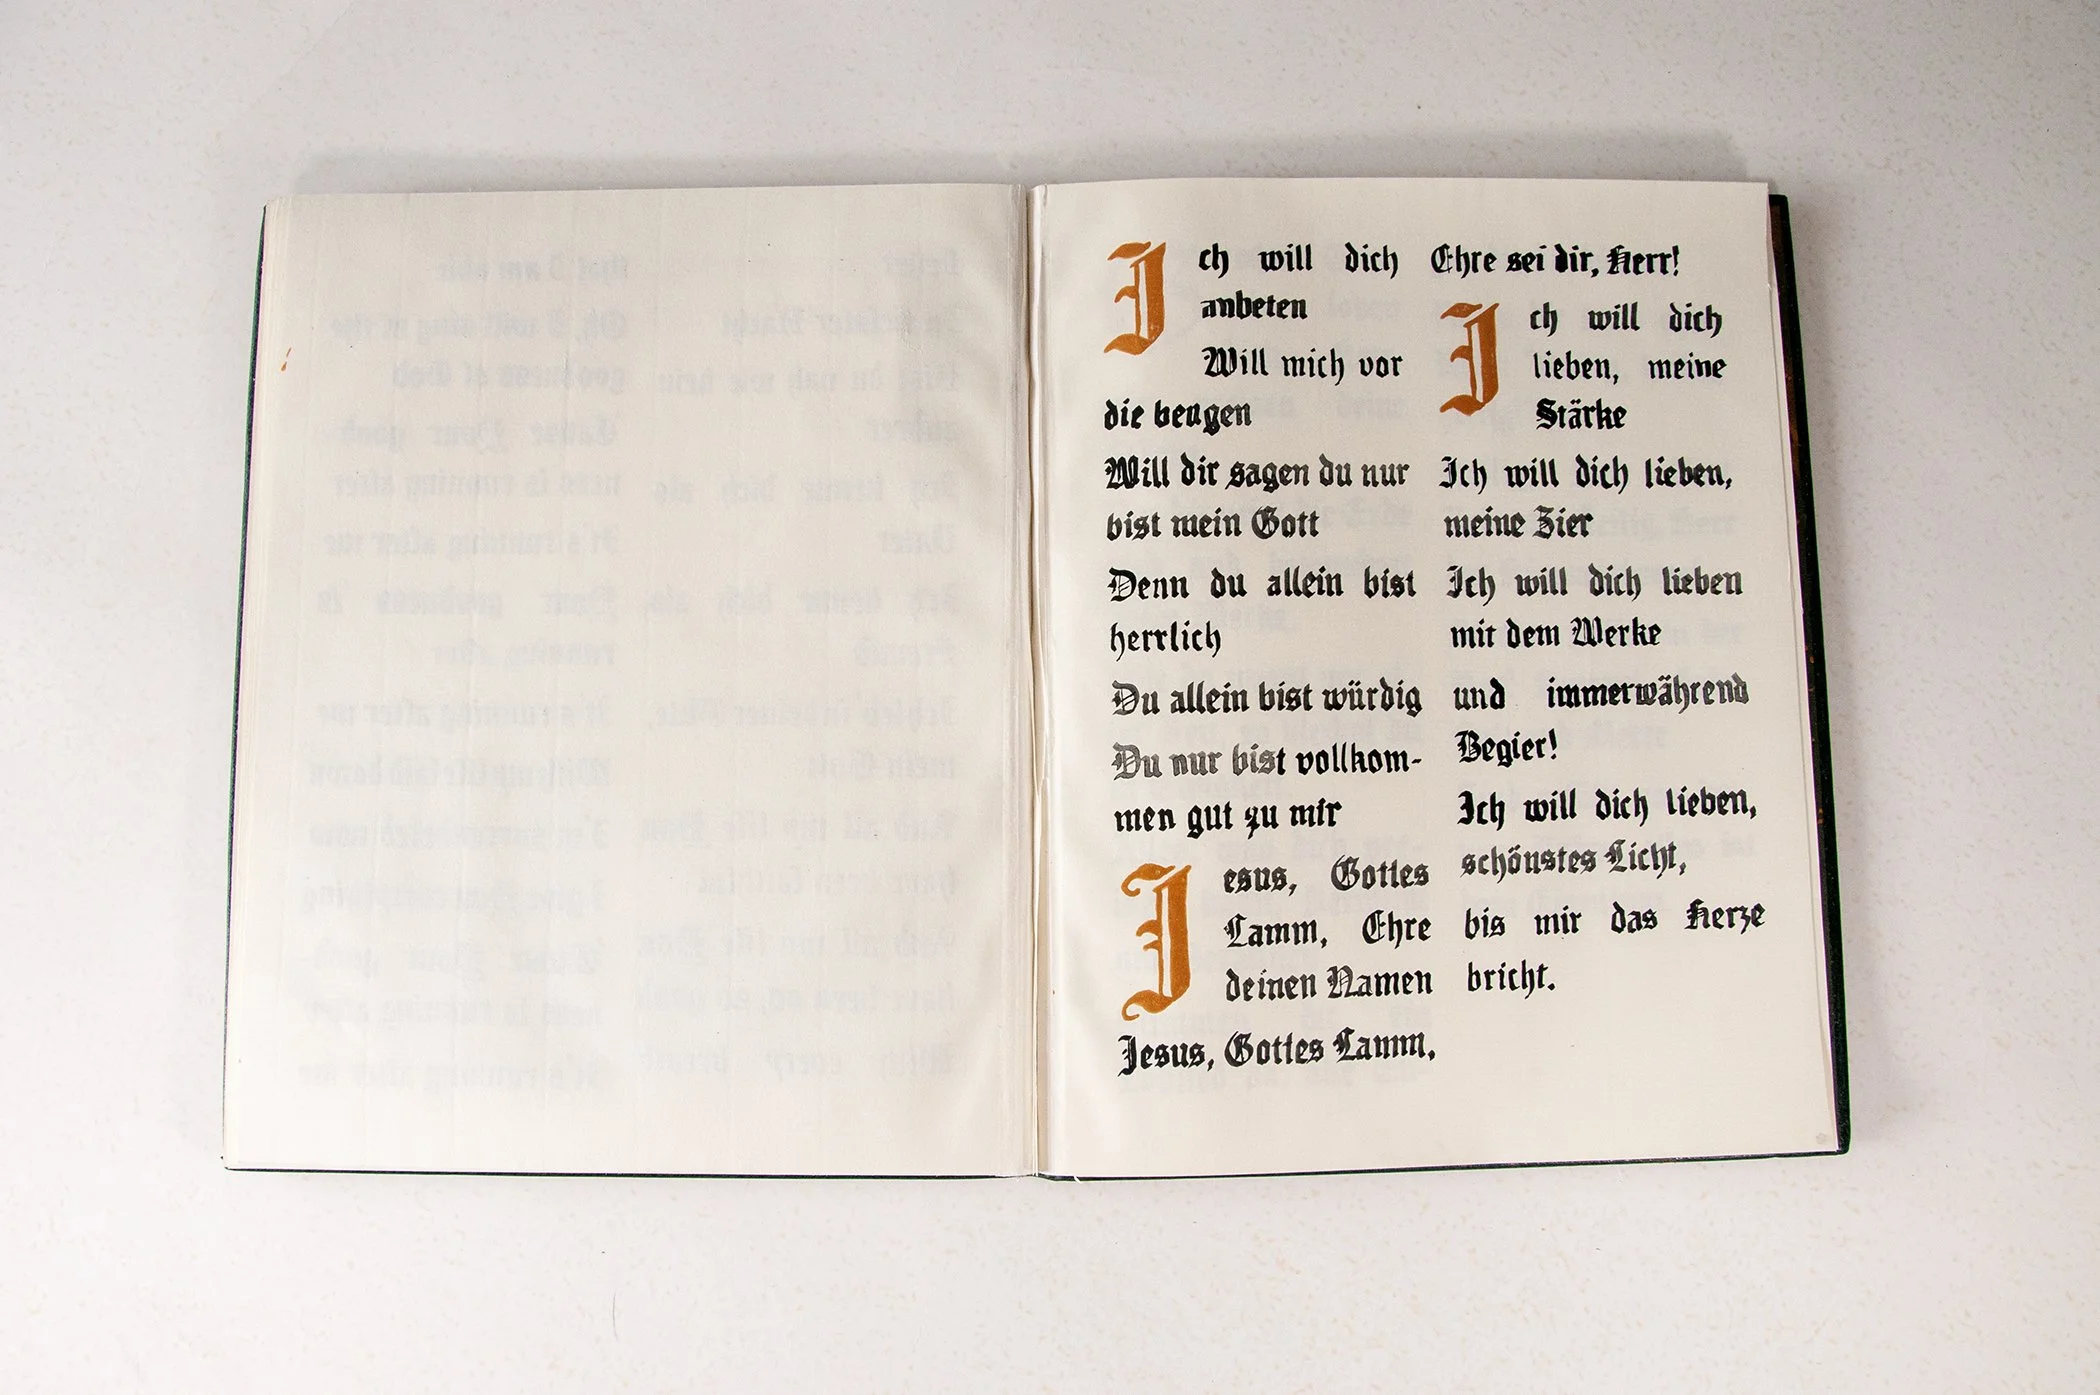 Ich will dich
anbeten
Will mich vor
die beugen
Will dir sagen du nur
bist mein Gott
Denn du allein bist
herrlich
Du allein bist würdig
Du nur bist vollkom-
men gut zu mir
Jesus, Gottes
Lamm, Ehre
deinen Namen
Jesus, Gottes Lamm,
Ehre sei dir, Herr!
Ich will dich
lieben, meine
Stärke
Ich will dich lieben,
meine Zier
Ich will dich lieben
mit dem Werke
und immerwährend
Begier!
Ich will dich lieben,
schönstes Licht,
bis mir das Herze
bricht.